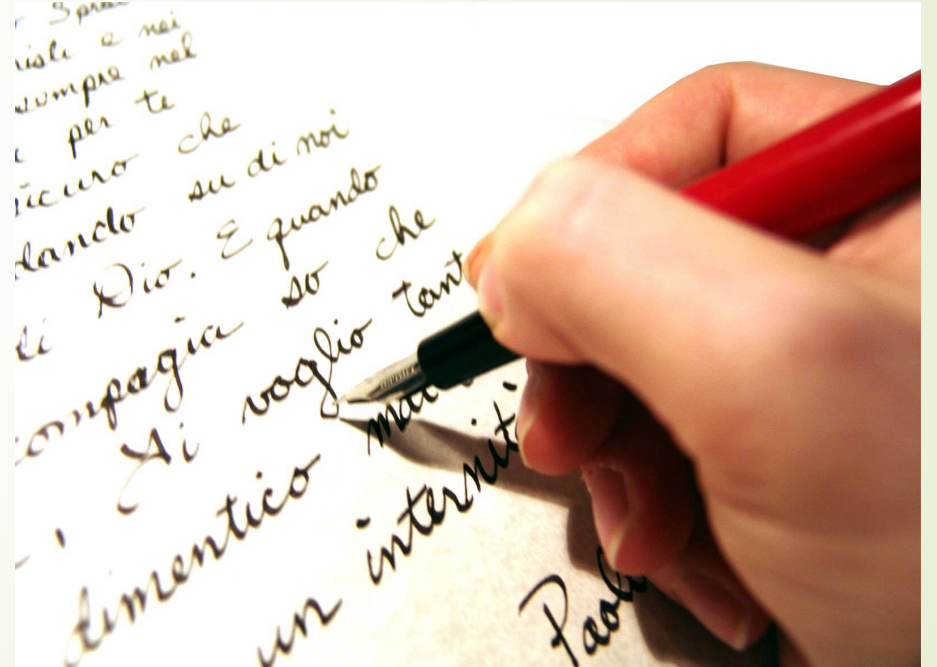 e nei
sempre nel
per te
sicuro che
dando su di noi
di Dio. E quando
compagia so che
Ti voglio tant
dimentico mai
un internit
Paol